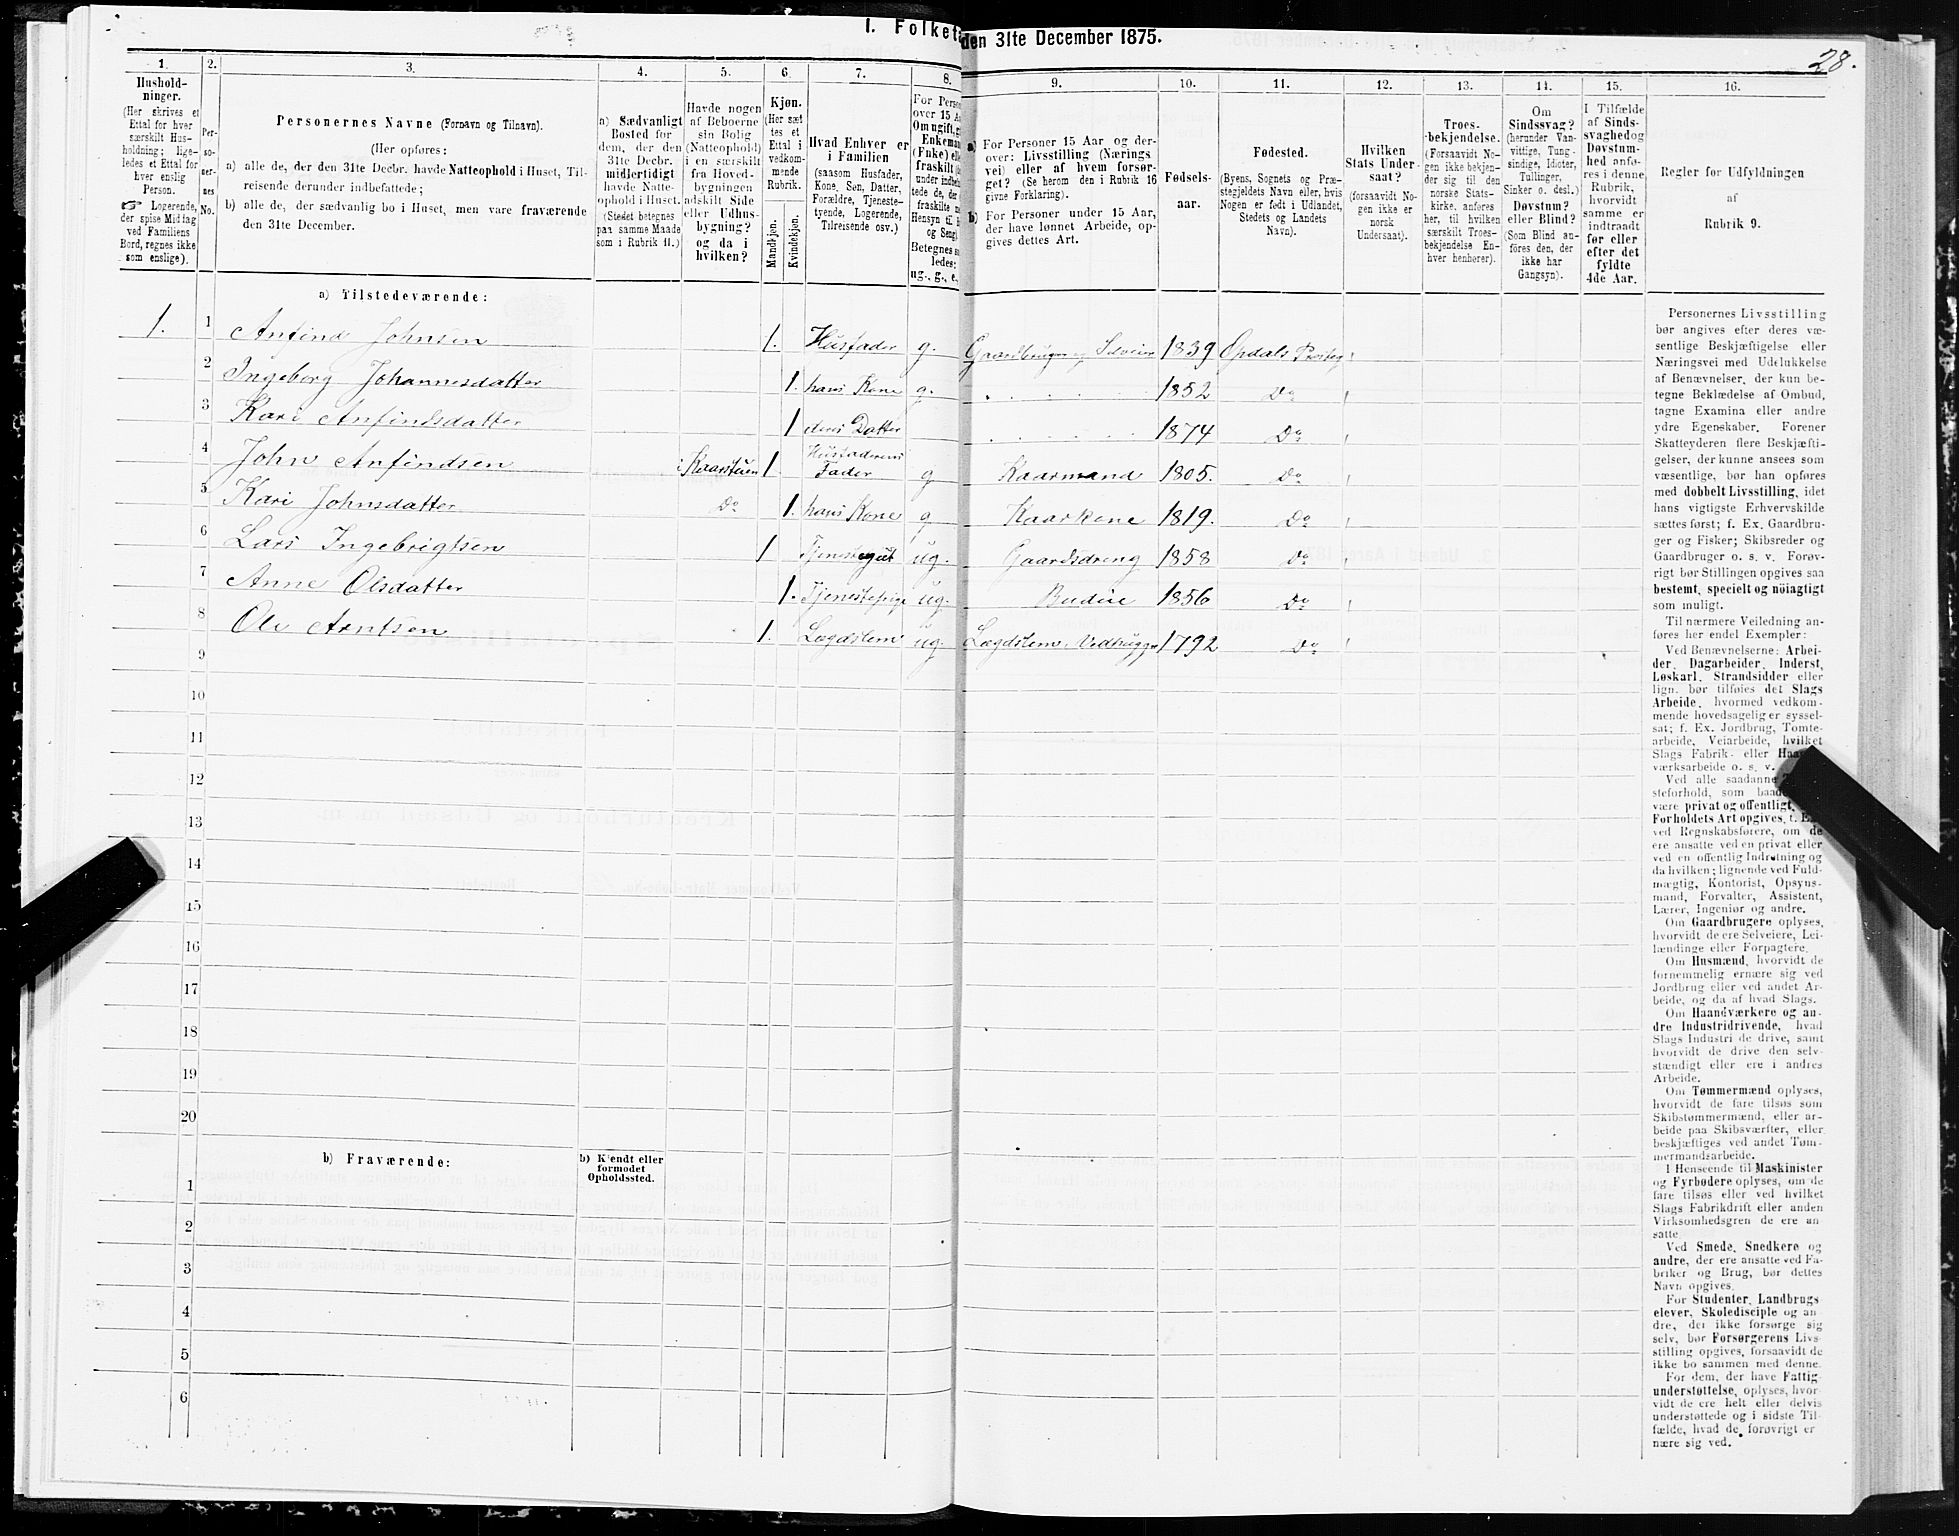 I. Folket
den 31te December 1875.
28.
1.
Hushold-
ninger.
(Her skrives et
Ettal for hver
særskilt Hus-
holdning; lige-
ledes et Ettal for
hver enslig
Person.
☞ Logerende,
der spise Middag
ved Familiens
Bord, regnes ikke
som enslige).
2.
Per-
so-
ner-
nes
No.
3.
Personernes Navne (Fornavn og Tilnavn).
(Her opføres:
a) alle de, der den 31te Decbr. havde Natteophold i Huset, Til-
reisende derunder indbefattede;
b) alle de, der sædvanlig bo i Huset, men vare fraværende
den 31te December.
4.
a) Sædvanligt
Bosted for
dem, der den
31te Decbr.
midlertidigt
havde Natte-
ophold i Huset.
(Stedet betegnes
paa samme Maade
som i Rubrik 11.)
5.
Havde nogen
af Beboerne
sin Bolig
(Natteophold)
i en særskilt
fra Hoved-
bygningen
adskilt Side
eller Udhus-
bygning?
og da i
hvilken?
6.
Kjøn.
(Her sæt
tes et
Ettal i
vedkom-
mende
Rubrik.
Mandkjøn.
Kvindekjøn.
7.
Hvad Enhver er
i Familien
(saasom Husfader,
Kone, Søn, Datter,
Forældre, Tjeneste-
tyende, Logerende,
Tilreisende osv.)
8.
For Person
over 15 A
Om ugift, g
Enkeman
(Fnke) ell
fraskilt (d
under indbe
tede de, der
fraskilte m
Hensyn til
og Seng)
Betegnes s
ledes:
ug., g., e.,
9.
a) For Personer 15 Aar og der-
over: Livsstilling (Nærings
vei) eller af hvem forsør-
get? (Se herom den i Rubrik 16
givne Forklaring).
b) For Personer under 15 Aar,
der have lønnet Arbeide, op-
gives dettes Art.
10.
Fødsels-
aar.
11.
Fødested.
(Byens, Sognets og Præ-
stegjeldets Navn eller, hvis
Nogen er født i Udlandet,
Stedets og Landets
Navn).
12.
Hvilken
Stats Under-
saat?
(forsaavidt No-
gen ikke er
norsk
Undersaat).
13.
Troes-
bekjendelse.
(Forsaavidt No-
gen ikke bekjen-
der sig til den
norske Stats-
kirke, anføres
her, til hvilken
særskilt Troes-
bekjendelse En-
hver henhører).
14.
Om
Sindssvag?
(herunder Van-
vittige, Tung-
sindige, Idioter,
Tullinger,
Sinker o. desl.)
Døvstum?
eller Blind?
(Som Blind an-
føres den, der
ikke har
Gangsyn).
15.
I Tilfælde
af Sinds-
svaghedog
Døvstum-
hed anfø-
res i denne
Rubrik,
hvorvidt
samme er
indtraadt
før eller
efter det
fyldte
4de Aar.
16.
Regler for Udfyldningen
af
Rubrik 9.
a) Tilstedeværende:
1. 1 Anfind Johnsen 1. Husfader g. Gaardbruger og Selveier 1839 Opdals Prsteg
2 Ingeborg Johannesdatter 1. hans Kone g. 1852 Do
3 Kari Anfindsdatter 1 deres Datter 1874 Do
4 John Anfindsen i Kaarstuen 1. Husfaderens Fader g Kaarmand 1805. Do
5 Kari Johnsdatter Do 1. hans Kone g Kaarkone 1819. Do
6 Lars Ingebrigtsen 1 Tjenestegut ug. Gaardsdreng 1858 Do
7 Anne Olsdatter 1. Tjenestepige ug. Budeie 1856 Do
8 Ole Arntsen 1. Lægdslem ug. Lægdslem, Vedhugger 1792 Do
9
10
11
12
13
14
15
16
17
18
19
20
b) Fraværende:
b) Kjendt eller
formodet
Opholdssted.
1
2
3
4
5
6
Personernes Livsstilling
bør angives efter deres væ-
sentlige Beskjæftigelse eller
Næringsvei med Udelukkelse
af Benævnelser, der kun be-
tegne Beklædelse af Ombud,
tagne Examina eller andre
ydre Egenskaber. Forener
Skatteyderen flere Beskjæfti-
gelser, der kunne ansees som
væsentlige, bør han opføres
med dobbelt Livsstilling, idet
hans vigtigste Erhvervskilde
sættes først; f. Ex. Gaardbru-
ger og Fisker; Skibsreder og
Gaardbruger o. s. v. Forøv-
rigt bør Stillingen opgives saa
bestemt, specielt og nöiagtigt
som muligt.
Til nærmere Veiledning an-
føres her endel Exempler:
Ved Benævnelserne: Arbei-
der, Dagarbeider, Inderst,
Løskarl, Strandsidder eller
lign. bør tilføies det Slags
Arbeide, hvormed vedkom-
mende hovedsagelig er syssel-
sat; f. Ex. Jordbrug, Tomte-
arbeide, Veiarbeide, hvilket
Slags Fabrik- eller Haand-
værksarbeide o. s. v.
Ved alle saadanne
steforhold, som baade
være privat og offentligt,
Forholdets Art opgives, f. Ex
ved Regnskabsførere, om de
ere ansatte ved en privat eller
ved en offentlig Indretning og
da hvilken; lignende ved Fuld-
mægtig, Kontorist, Opsyns-
mand, Forvalter, Assistent,
Lærer, Ingeniør og andre.
Om Gaardbrugere oplyses,
hvorvidt de ere Selveiere, Lei-
lændinge eller Forpagtere.
Om Husmænd, hvorvidt de
fornemmelig ernære sig ved
Jordbrug eller ved andet Ar-
beide, og da af hvad Slags.
Om Haandværkere og an-
dre Industridrivende, hvad
Slags Industri de drive, samt
hvorvidt de drive den selv-
stændigt eller ere i andres
Arbeide.
Om Tømmermænd oplyses,
hvorvidt de fare tilsøs som
Skibstømmermænd, eller ar-
beide paa Skibsværfter, eller
beskjæftiges ved andet Tøm-
mermandsarbeide.
I Henseende til Maskinister
og Fyrbødere oplyses, om de
fare tilsøs eller ved hvilket
Slags Fabrikdrift eller anden
Virksomhedsgren de ere an-
satte.
Ved Smede, Snedkere og
andre, der ere ansatte ved Fa-
briker og Brug, bør dettes
Navn opgives.
For Studenter, Landbrugs-
elever, Skoledisciple og an-
dre, der ikke forsørge sig
selv, bør Forsørgerens Livs-
stilling opgives, forsaavidt de
ikke bo sammen med denne.
For dem, der have Fattig-
understøttelse, oplyses, hvor-
vidt de ere helt eller delvis
understøttede og i sidste Til-
fælde, hvad de forøvrigt er
nære sig ved.